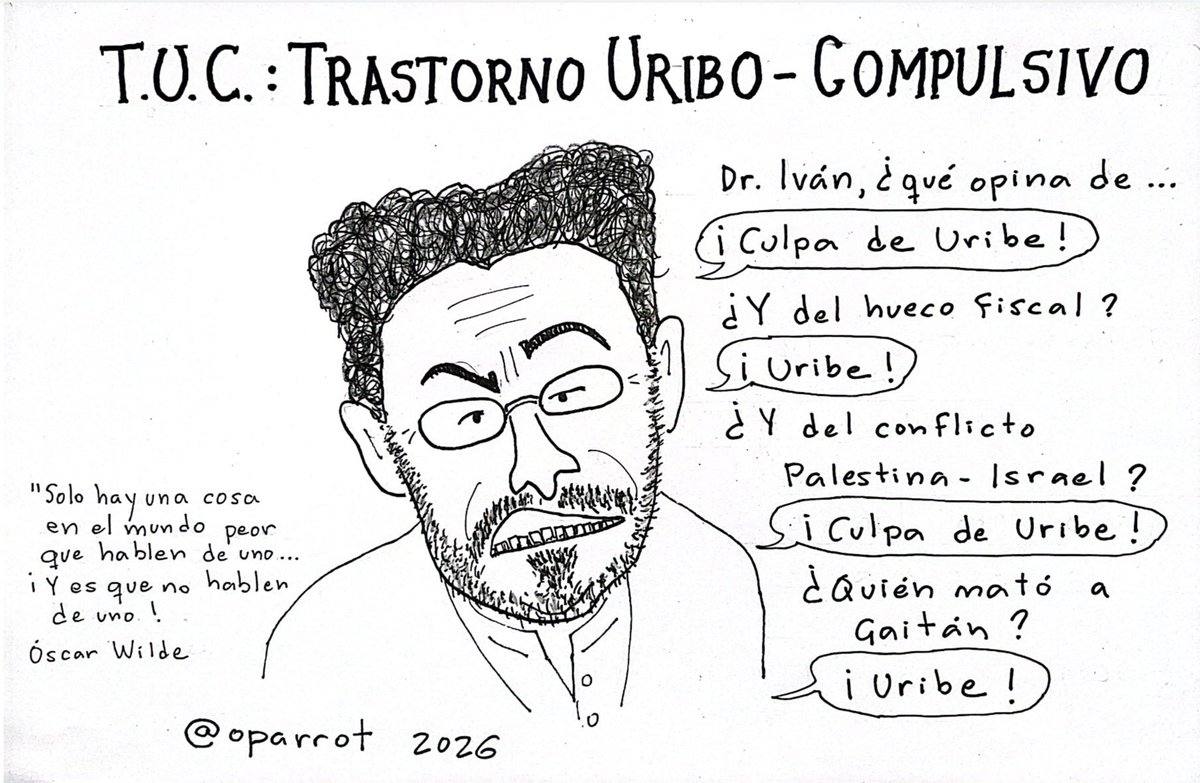 T.U.C.: TRASTORNO URIBO-COMPULSIVO
Dr. Iván, ¿qué opina de ...
¡Culpa de Uribe!
¿Y del hueco fiscal?
¡Uribe!
¿Y del conflicto
Palestina-Israel?
¡Culpa de Uribe!
¿Quién mató a
Gaitán?
¡Uribe!
"Solo hay una cosa
en el mundo peor
que hablen de uno...
¡Y es que no hablen
de uno!
Óscar Wilde
@oparrot 2026